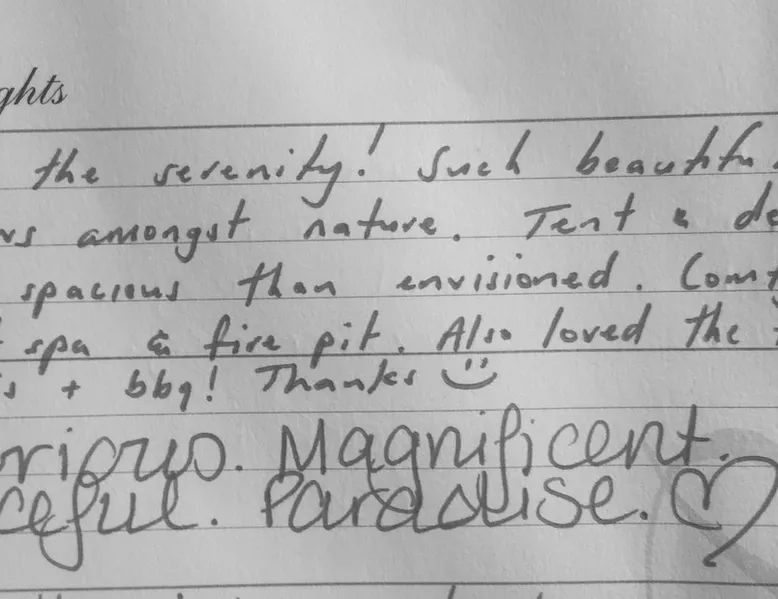 ghts
the serenity! Such beautifu
rs amongst nature. Tent & de
spacious than envisioned. Comf
spa & fire pit. Also loved the
s + bbq! Thanks
rious. Magnificent.
ceful. Paradise.